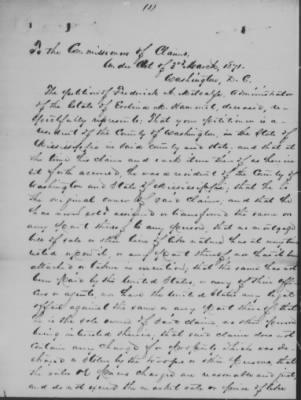 (1)
To the Commissioners of Claims,
Under Act of 3rd March, 1871.
Washington, D. C.
The petition of Frederick A. Metcalfe, Administrator
of the Estate of Evelina Hammet, deceased, re-
spectfully represents: That your petitioner is a
resident of the County of Washington, in the State of
Mississippi in said County and state, and that at
the time the claim and each item thereof as herein
set forth accrued, he was a resident of the County of
Washington and State of Mississippi; that he is
the original owner of said claims, and that he
has never sold assigned or transferred the same or
any part thereof to any person, that no mortgage
bill of sale or other lien of like nature has at any time
rested upon it, or any part thereof nor has it been
attached or taken in execution; that the same has not
been paid by the United States, or any of their offi-
cers or agents, nor have the United States any legal
offset against the same or any part thereof, that
he is the sole owner of said claim no other person
being interested therein, that said claim does not
contain any charge for property which was de-
stroyed or stolen by the troops or other persons, that
the rates or prices charged are reasonable and just
and do not exceed the market rate or price of like